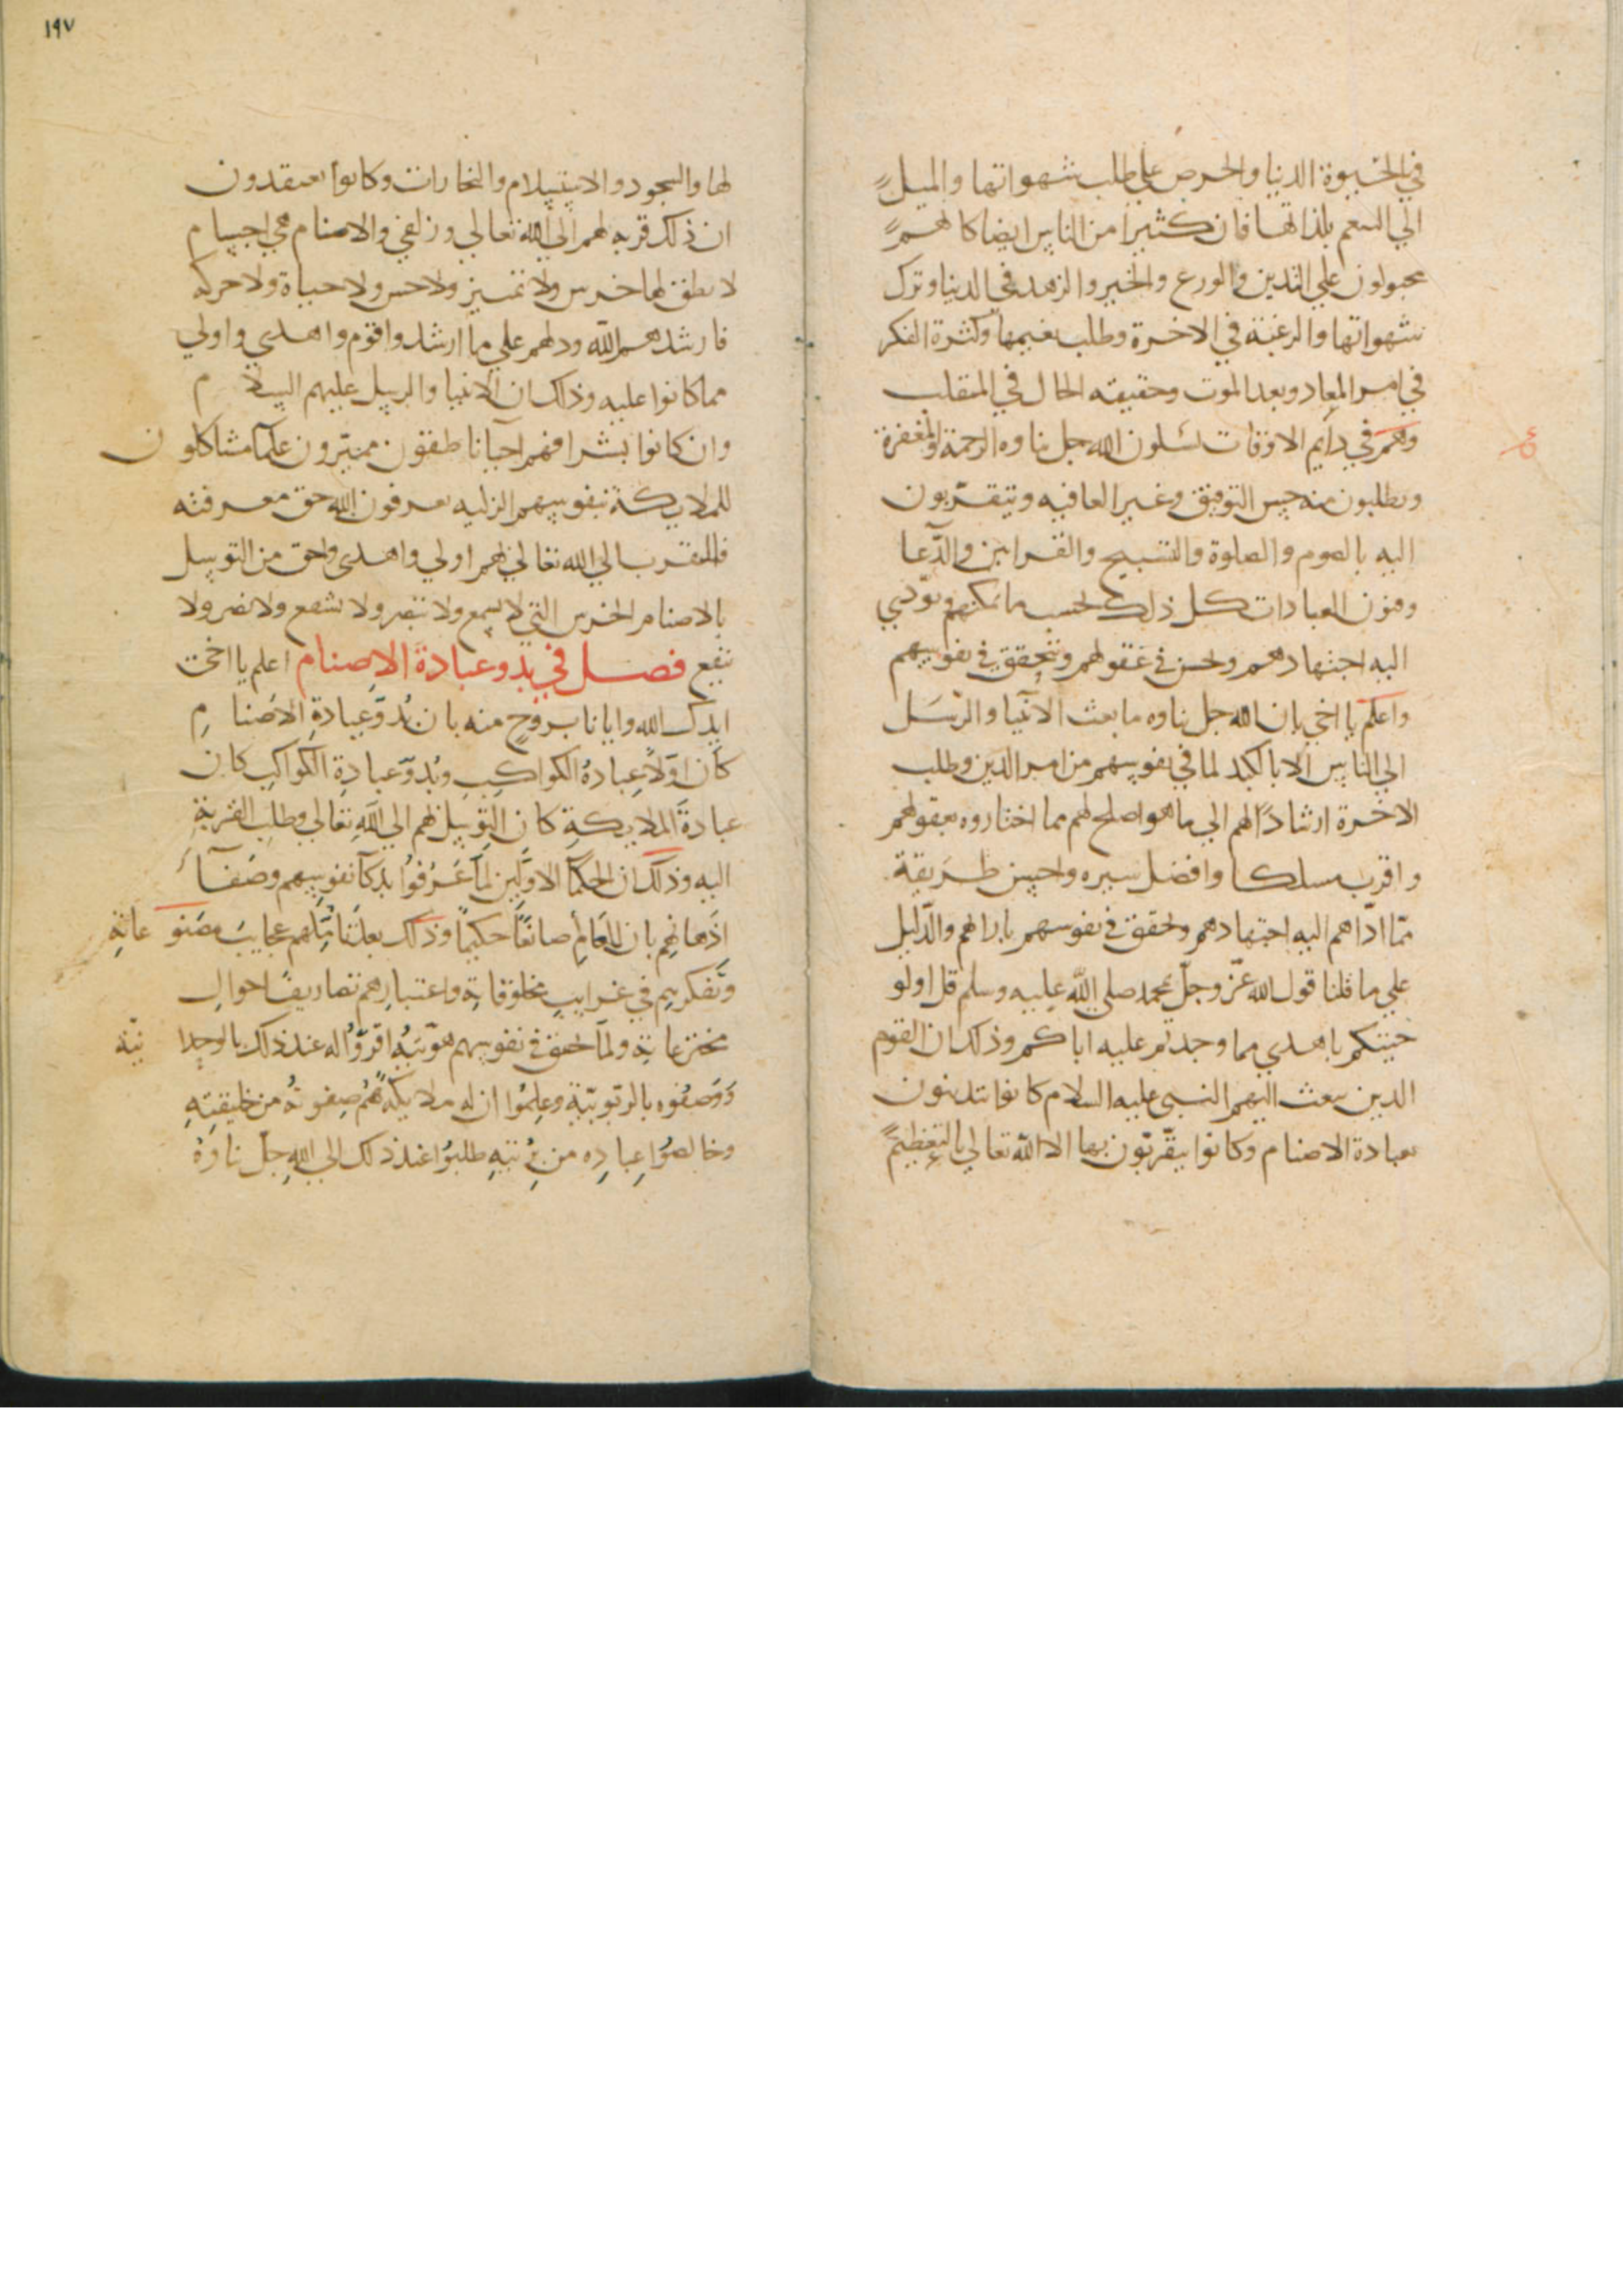 في الحيوة الدنيا والحرص على طلب شهواتها والميل
الي التنعم بلذاتها فان كثيرا من الناس ايضا كالهم
مجبولون علي التدين والورع والخير والزهد في الدنيا وترك
شهواتها والرغبة في الاخرة وطلب نعيمها وكثرة الفكر
في امر المعاد وبعد الموت وحقيقه الحال في المنقلب
وهم في دايم الاوقات يسلون الله جل ثناوه الرحمة والمغفرة
ويطلبون منه حسن التوفيق وغير العافيه ويتقربون
اليه بالصوم والصلوة والتسبيح والقرابين والدعا
وفنون العبادات كل ذلك بحسب ما يمكنهم يودي
اليه اجتهادهم وحسن في عقولهم وتحقق في نفوسهم
واعلم يا اخي بان الله جل ثناوه ما بعث الانبيا والرسل
الي الناس الا بالتاكيد لما في نفوسهم من امر الدين وطلب
الاخرة ارشادا لهم الي ما هو اصلح لهم مما اختاروه بعقولهم
واقرب مسلكا وافضل سيره واحسن طريقة
مما اداهم اليه اجتهادهم وتحقق في نفوسهم بارائهم والدليل
علي ما قلنا قول الله عز وجل لمحمد صلي الله عليه وسلم قل اولو
جيتكم باهدي مما وجدتم عليه اباكم وذلك ان القوم
الذين بعث اليهم النبي عليه السلام كانوا يتدينون
بعبادة الاصنام وكانوا يتقربون بها الا الله تعالي بالتعظيم
١٩٧
لها والسجود والاستسلام والبخارات وكانوا يعتقدون
ان ذلك قربه لهم الي الله تعالي وزلفي والاصنام هي اجسام
لا نطق لها خرس ولا تمييز ولا حس ولا حياة ولا حركه
فارشدهم الله ودلهم علي ما ارشد واقوم واهدي واولي
مما كانوا عليه وذلك ان الانبيا والرسل عليهم السلام
وان كانوا بشرا فهم احيا ناطقون مميزون علما مشاكلون
للملايكة بنفوسهم الزكيه يعرفون الله حق معرفته
فالتقرب الي الله تعالي بهم اولي واهدى واحق من التوسل
بالاصنام الخرس التي لا تسمع ولا تبصر ولا تشفع ولا تضر ولا
تنفع فصل في بدو عبادة الاصنام اعلم يا اخي
ايدك الله وايانا بروح منه بان بدو عبادة الاصنام
كان اولا عبادة الكواكب وبدو عبادة الكواكب كان
عبادة الملايكة كان التوسل بهم الي الله تعالي وطلب القربة
اليه وذلك ان الحكما الاولين لما عرفوا بذكا نفوسهم وصفا
اذهانهم بان للعالم صانعا حكيما وذلك بعد تاملهم عجايب مصنوعاته
وتفكرهم في غرايب مخلوقاته واعتبارهم تصاريف احوال
مخترعاته ولما تحقق في نفوسهم هويته اقروا له عند ذلك بالوحدانية
ووصفوه بالربوبية وعلموا ان له ملايكة هم صفوته من خليقته
وخالصوا عباده من بريته طلبوا عند ذلك الي الله جل ثناوه